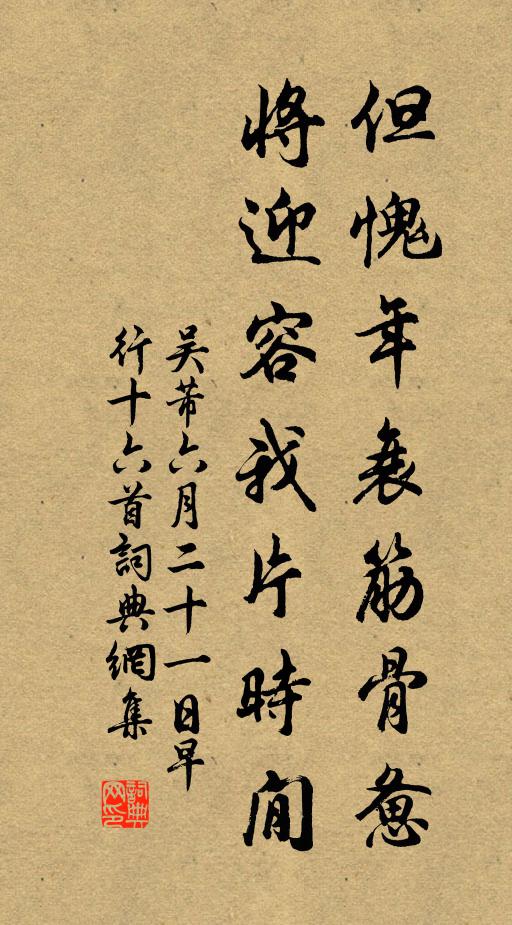 但愧年衰筋骨惫
將迎容我片時閒
吳芾六月二十一日早
行十六首詞典網集
詞典
网印